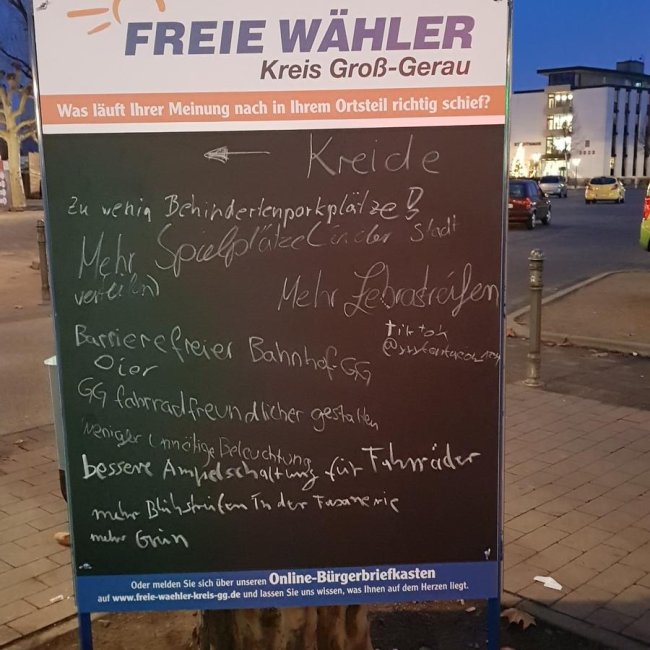 FREIE WÄHLER
Kreis Groß-Gerau
Was läuft Ihrer Meinung nach in Ihrem Ortsteil richtig schief?
← Kreide
zu wenig Behindertenparkplätze!
Mehr Spielplätze (in der Stadt
verteilen)
Mehr Zebrastreifen
Barrierefreier Bahnhof GG
Tiktok
Oier
GG fahrradfreundlicher gestalten
weniger unnötige Beleuchtung
bessere Ampelschaltung für Fahrräder
mehr Blühstreifen In der Fasanerie
mehr Grün
Oder melden Sie sich über unseren Online-Bürgerbriefkasten
auf www.freie-waehler-kreis-gg.de und lassen Sie uns wissen, was Ihnen auf dem Herzen liegt.